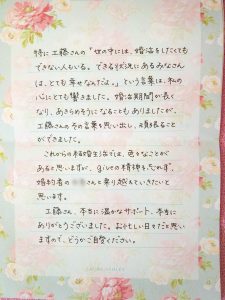 特に工藤さんの「世の中には、婚活をしたくても
できない人もいる。できる状況にあるみなさん
は、とても幸せなんだよ。」という言葉は、私の
心にとても響きました。婚活期間が長く
なり、あきらめそうになることもありましたが、
工藤さんのその言葉を思い出し、頑張ること
ができました。
これからの結婚生活では、色々なことが
あると思いますが、giveの精神を忘れず、
婚約者の さんと乗り越えていきたいと
思います。
工藤さん、本当に温かなサポート、本当に
ありがとうございました。お忙しい日々だと思い
ますので、どうかご自愛ください。